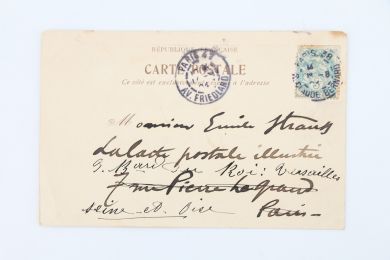 RÉPUBLIQUE FRANÇAISE
CARTE POSTALE
Ce côté est exclusivement réservé à l'adresse
PARIS 47
AV. FRIEDLAND
PARIS
CLAUDE BERNARD
Monsieur Emile Strauss
La Carte postale illustrée
Bard du Roi: Versailles
7 rue Pierre Legrand
Seine et Oise Paris